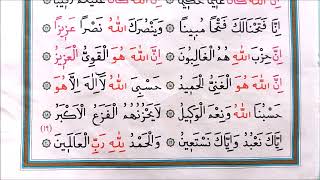 اِنَّ اللهَ كَانَ عَلِيمًا حَكِيمًا
اِنَّا فَتَحْنَالَكَ فَتْحًا مُبِينًا وَيَنْصُرَكَ اللهُ نَصْرًا عَزِيزًا
اِنَّ حِزْبَ اللهِ هُمُ الْغَالِبُونَ اِنَّ اللهَ هُوَ الْقَوِيُّ الْعَزِيزُ
اِنَّ اللهَ هُوَ الْغَنِيُّ الْحَمِيدُ حَسْبِيَ اللهُ لَآاِلٰهَ اِلَّاهُوَ
حَسْبُنَا اللهُ وَنِعْمَ الْوَكِيلُ لَايَحْزُنُهُمُ الْفَزَعُ الْاَكْبَرُ
(١٩)
اِيَّاكَ نَعْبُدُ وَاِيَّاكَ نَسْتَعِينُ وَالْحَمْدُ لِلّٰهِ رَبِّ الْعَالَمِينَ